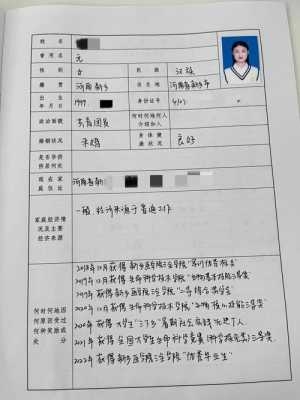 姓 名
曾用名 无
性 别 女 民 族 汉族
籍 贯 河南新乡 出生地 河南省新乡市
出 生 年 月 日 1999 身份证号 4102
政治面貌 共青团员 何时何地何人介绍加入
婚姻状况 未婚 身体健康状况 良好
是否华侨侨居何处
现在家庭住址 河南省新
家庭经济情况及主要经济来源 一般,经济来源于普通工作
何时何地因何原因受过何种奖励或处分
2018年12月获得新乡医学院三全学院"
2019年12月获得生命科学技术学院"
2019年获得新乡医学院三全学院"二等综合奖学金"
2020年获得生命科学技术学院"
2020年获得大学生"三下乡"暑期社会实践"先进个人
2021年获得全国大学生生命科学竞赛(科学探究类)三等奖.
2022年获得新乡医学院三全学院"优秀毕业生"